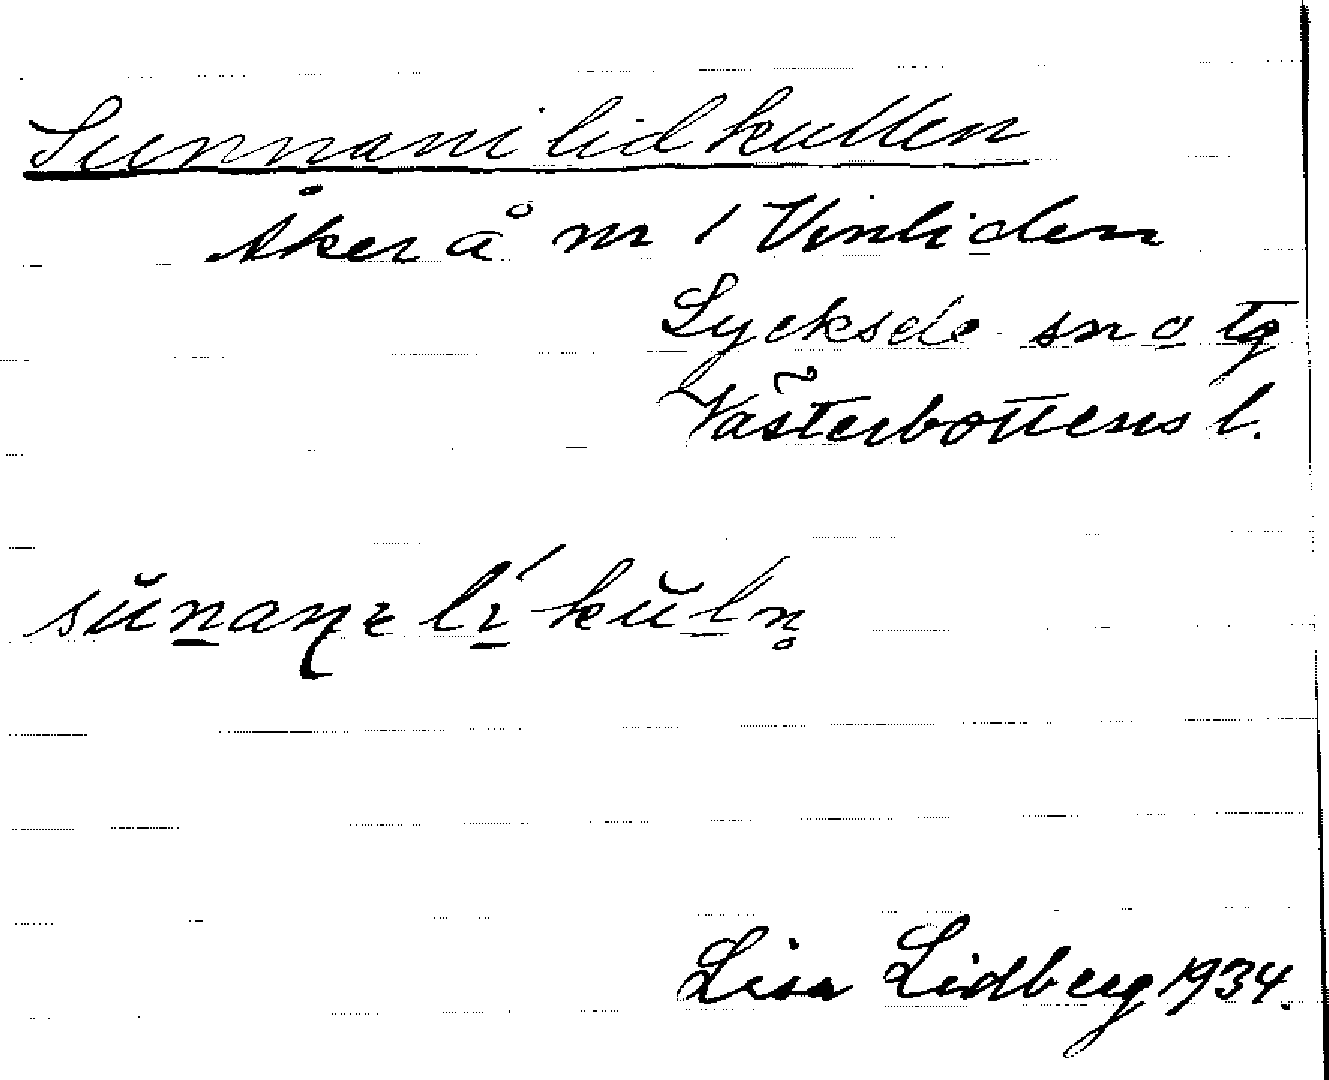 Sunnanilidkullen
Åker å nr 1 Vinliden
Lycksele sn o tg
Västerbottens l.
Lisa Lidberg 1934.